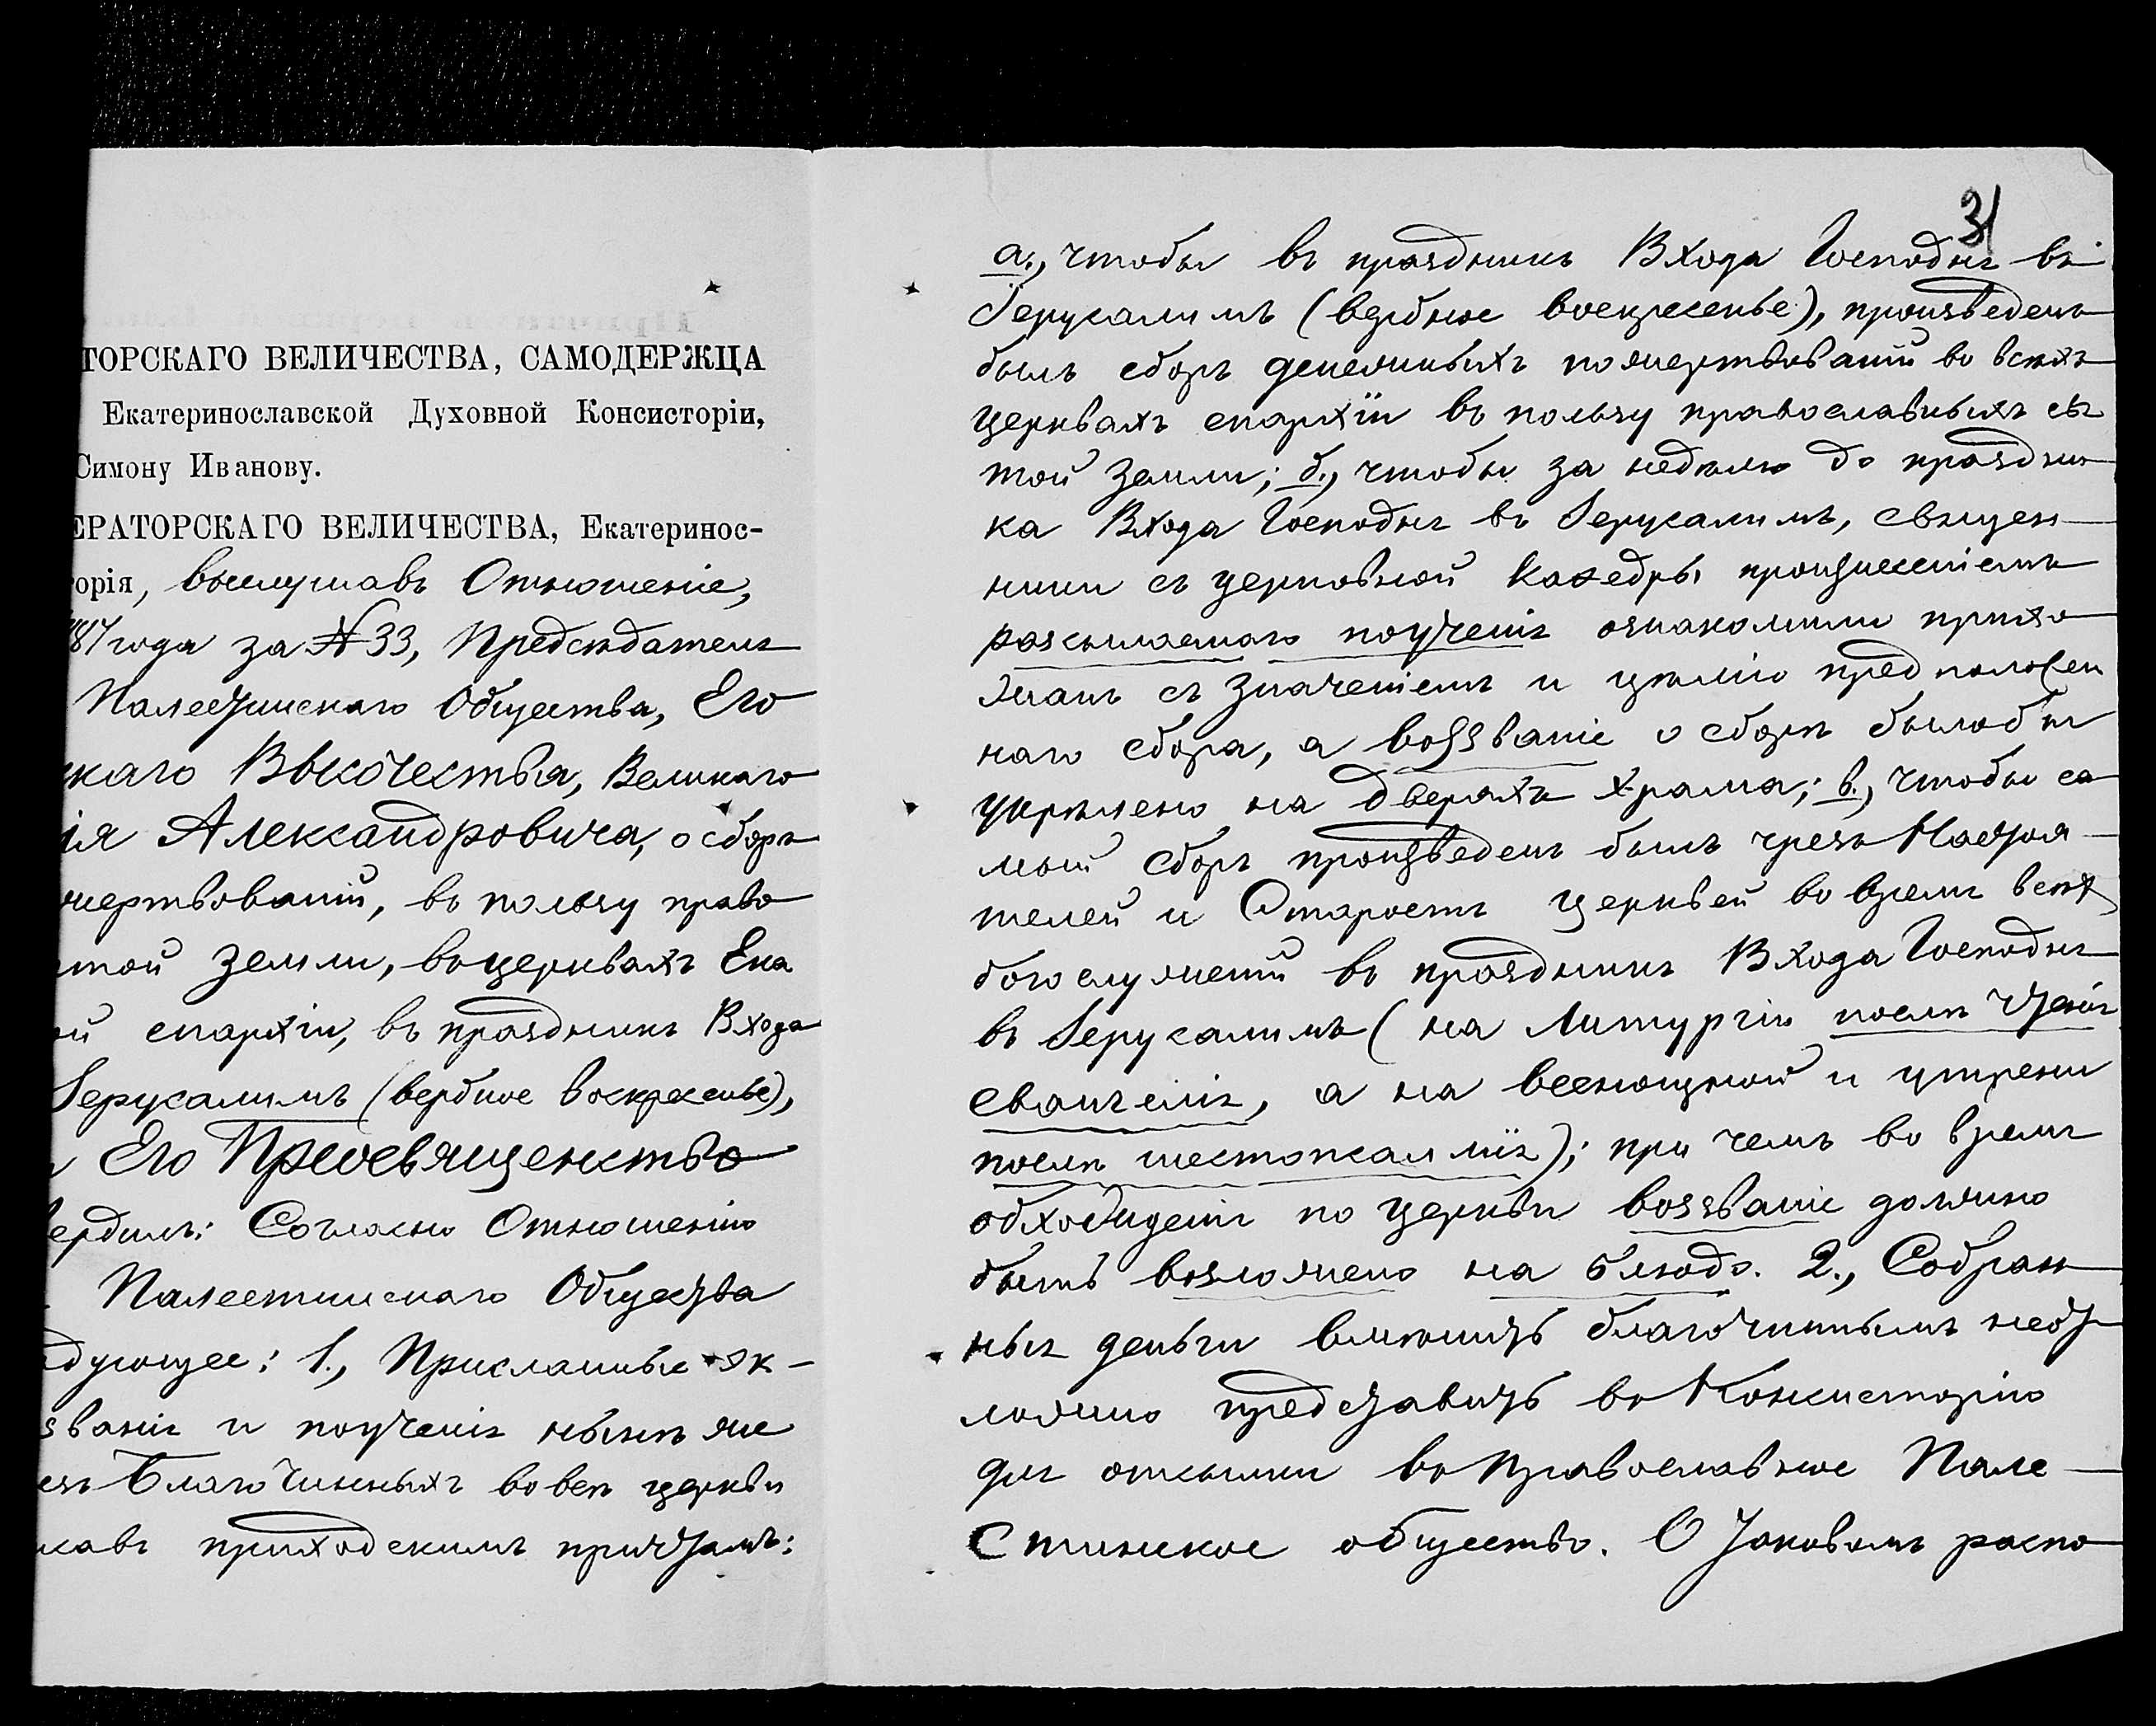 ТОРСКАГО ВЕЛИЧЕСТВА, САМОДЕРЖЦА
Екатеринославской Духовной Консисторіи,
Симону Иванову.
ЕРАТОРСКАГО ВЕЛИЧЕСТВА, Екатеринос-
орія, выслушавъ Отношеніе,
года за № 33, Предсѣдателя
Палестинскаго Общества, Его
скаго Высочества, Великаго
ія Александровича, о сборѣ
жертвованій, въ пользу право
той земли, въ церквахъ Ека
ой епархіи, въ праздникъ Входа
Іерусалимъ (вербное воскресенье),
Его Преосвященство
вердилъ: Согласно Отношенію
Палестинскаго Общества
дующее: 1., Присланные эк-
званія и поученія нынѣ же
езъ Благочинныхъ во всѣ церкви
савъ приходскимъ причтамъ:
31
а., чтобы въ праздникъ Входа Господня въ
Іерусалимъ (вербное воскресенье), произведенъ
былъ сборъ денежныхъ пожертвованій во всѣхъ
церквахъ епархіи въ пользу православныхъ свя
той земли; б., чтобы за недѣлю до праздни
ка Входа Господня въ Іерусалимъ, священ
ники съ церковной каѳедры произнесеніемъ
разсылаемаго поученія ознакомили прихо
жанъ съ значеніемъ и цѣлію предположен
наго сбора, а воззваніе о сборѣ было бы
укрѣплено на дверяхъ храма; в., чтобы са
мый сборъ произведенъ былъ чрезъ Настоя
телей и Старостъ церквей во время всѣхъ
богослуженій въ праздникъ Входа Господня
въ Іерусалимъ (на Литургіи послѣ чтенія
евангелія, а на всенощной и утрени
послѣ шестопсалмія); при чемъ во время
обхожденія по церкви воззваніе должно
быть возложено на блюдо. 2., Собран
ныя деньги вмѣнить благочиннымъ неот
ложно представить въ Консисторію
для отсылки въ Православное Пале
стинское общество. О таковомъ распо